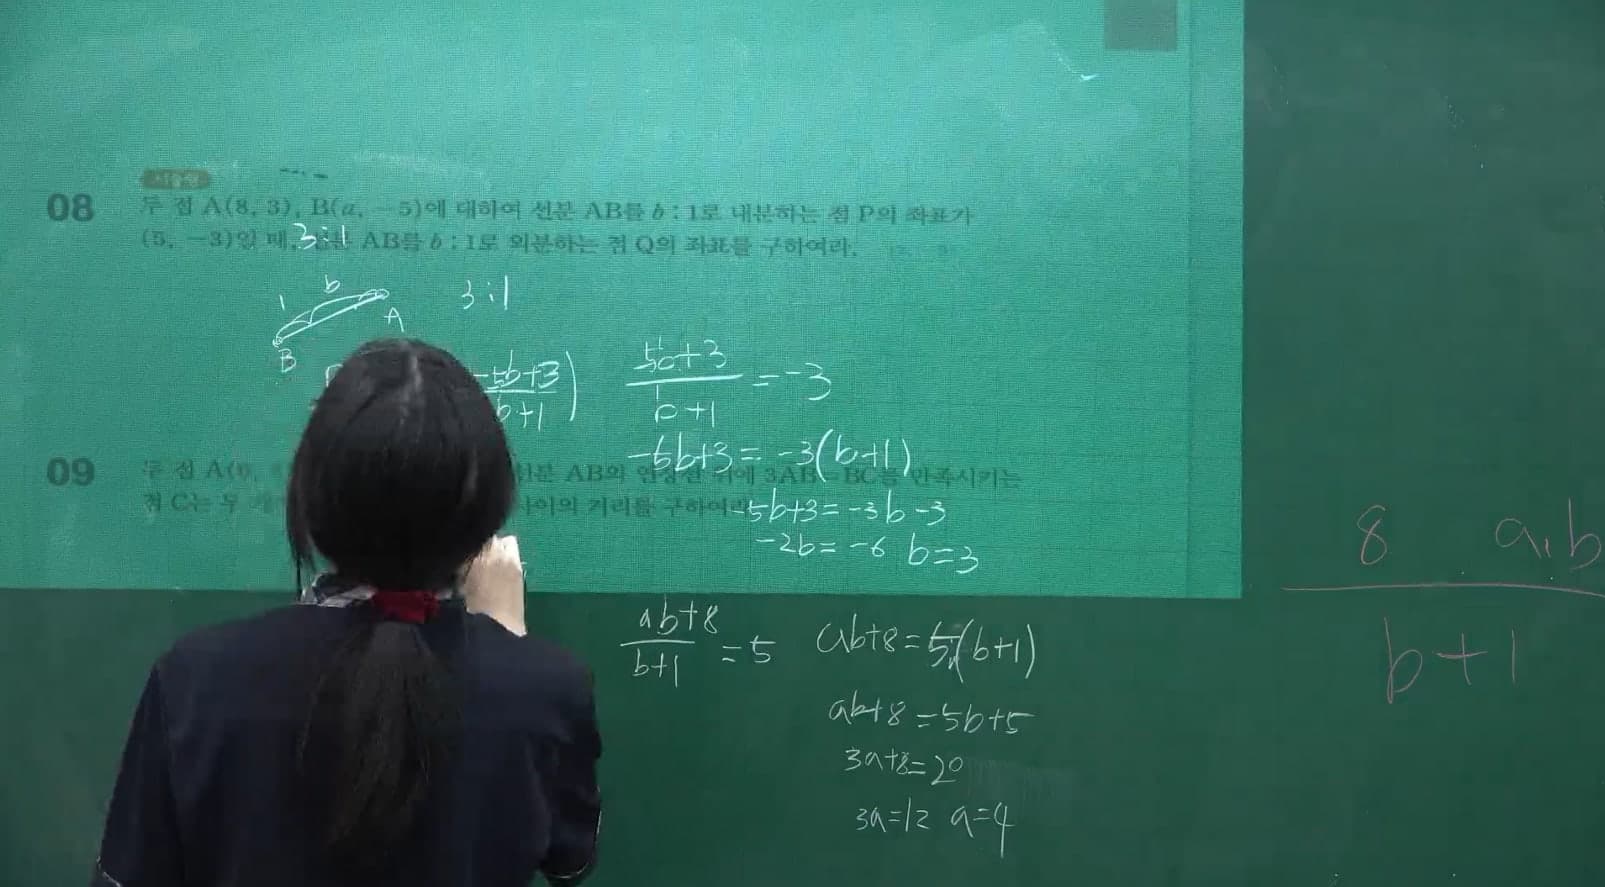 서술형
08 두 점 A(8, 3), B(a, -5)에 대하여 선분 AB를 b : 1로 내분하는 점 P의 좌표가
(5, -3)일 때, AB를 b : 1로 외분하는 점 Q의 좌표를 구하여라.
3:1
1 b
A
B
3:1
-5b+3
b+1 )
5b+3
b+1
=-3
-5b+3=-3(b+1)
-5b+3=-3b-3
-2b=-6 b=3
09 두 점 A(0,
선분 AB의 연장선 위에 3AB=BC를 만족시키는
점 C는 두
사이의 거리를 구하여라
ab+8
b+1
=5
ab+8=5(b+1)
ab+8=5b+5
3a+8=20
3a=12 a=4
8 a,b
b+1